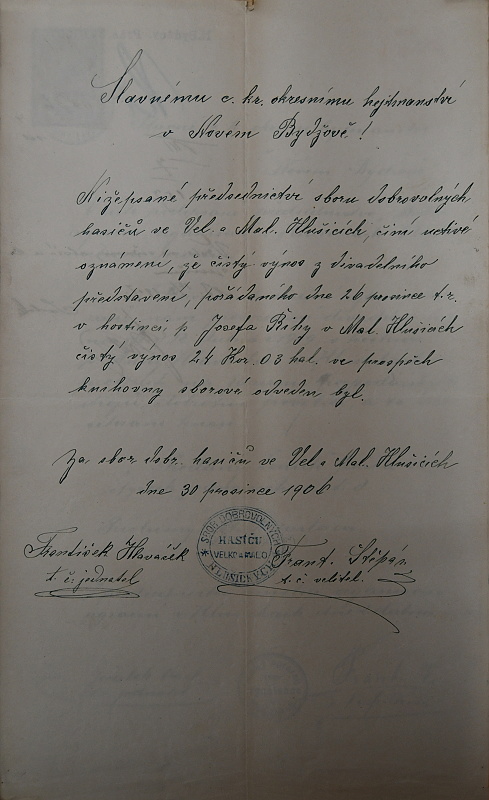 Slavnému c. kr. okresnímu hejtmanství
v Novém Bydžově!
Nížepsané předsednictví sboru dobrovolných
hasičů ve Vel. a Mal. Hlušicích, činí uctivé
oznámení, že čistý výnos z divadelního
představení, pořádaného dne 26 prosince t.r.
v hostinci p. Josefa Říhy v Mal. Hlušicích
čistý výnos 24 Kor. 03 hal. ve prospěch
knihovny sborové odveden byl.
Za sbor dobr. hasičů ve Vel a Mal. Hlušicích
dne 30 prosince 1906
František Hlaváček
t. č. jednatel
SBOR DOBROVOLNÝCH
HASIČŮ
VELKO a MALO
HLUŠICKÝCH
Frant. Štěpán
t. č. velitel.